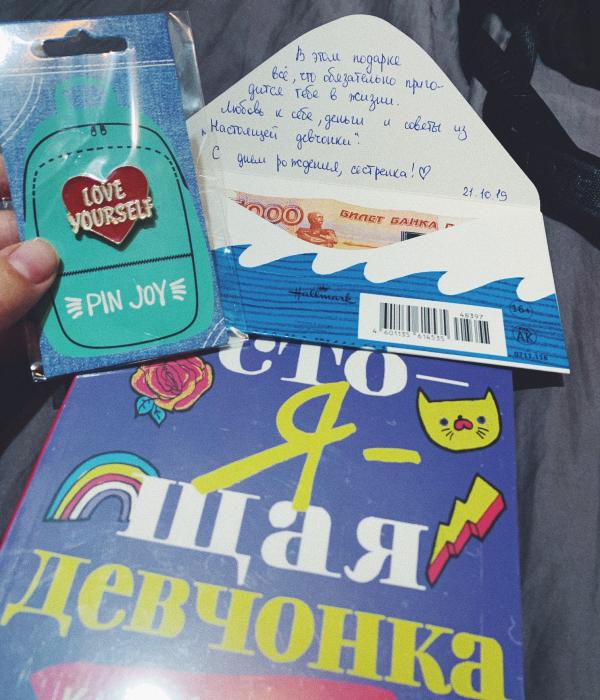 LOVE
YOURSELF
PIN JOY
В этом подарке
всё, что обязательно приго-
дится тебе в жизни.
Любовь к себе, деньги и советы из
„Настоящей девчонки".
С днём рождения, сестрёнка!♡
21.10.19
БИЛЕТ БАНКА
Hallmark
48397
4 601135 614535
16+
АК
0212.116
сто–
Я-
щая
девчонка